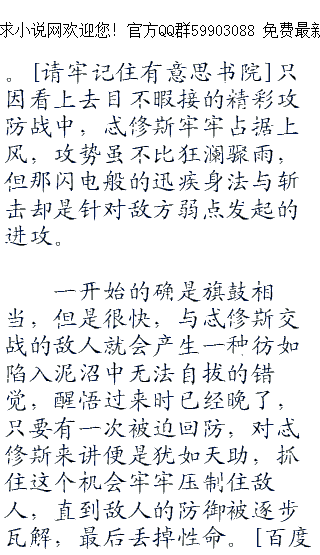 求小说网欢迎您！官方QQ群59903088 免费最新
。[请牢记住有意思书院]只
因看上去目不暇接的精彩攻
防战中，忒修斯牢牢占据上
风，攻势虽不比狂澜骤雨，
但那闪电般的迅疾身法与斩
击却是针对敌方弱点发起的
进攻。
一开始的确是旗鼓相
当，但是很快，与忒修斯交
战的敌人就会产生一种彷如
陷入泥沼中无法自拔的错
觉，醒悟过来时已经晚了，
只要有一次被迫回防，对忒
修斯来讲便是犹如天助，抓
住这个机会牢牢压制住敌
人，直到敌人的防御被逐步
瓦解，最后丢掉性命。[百度